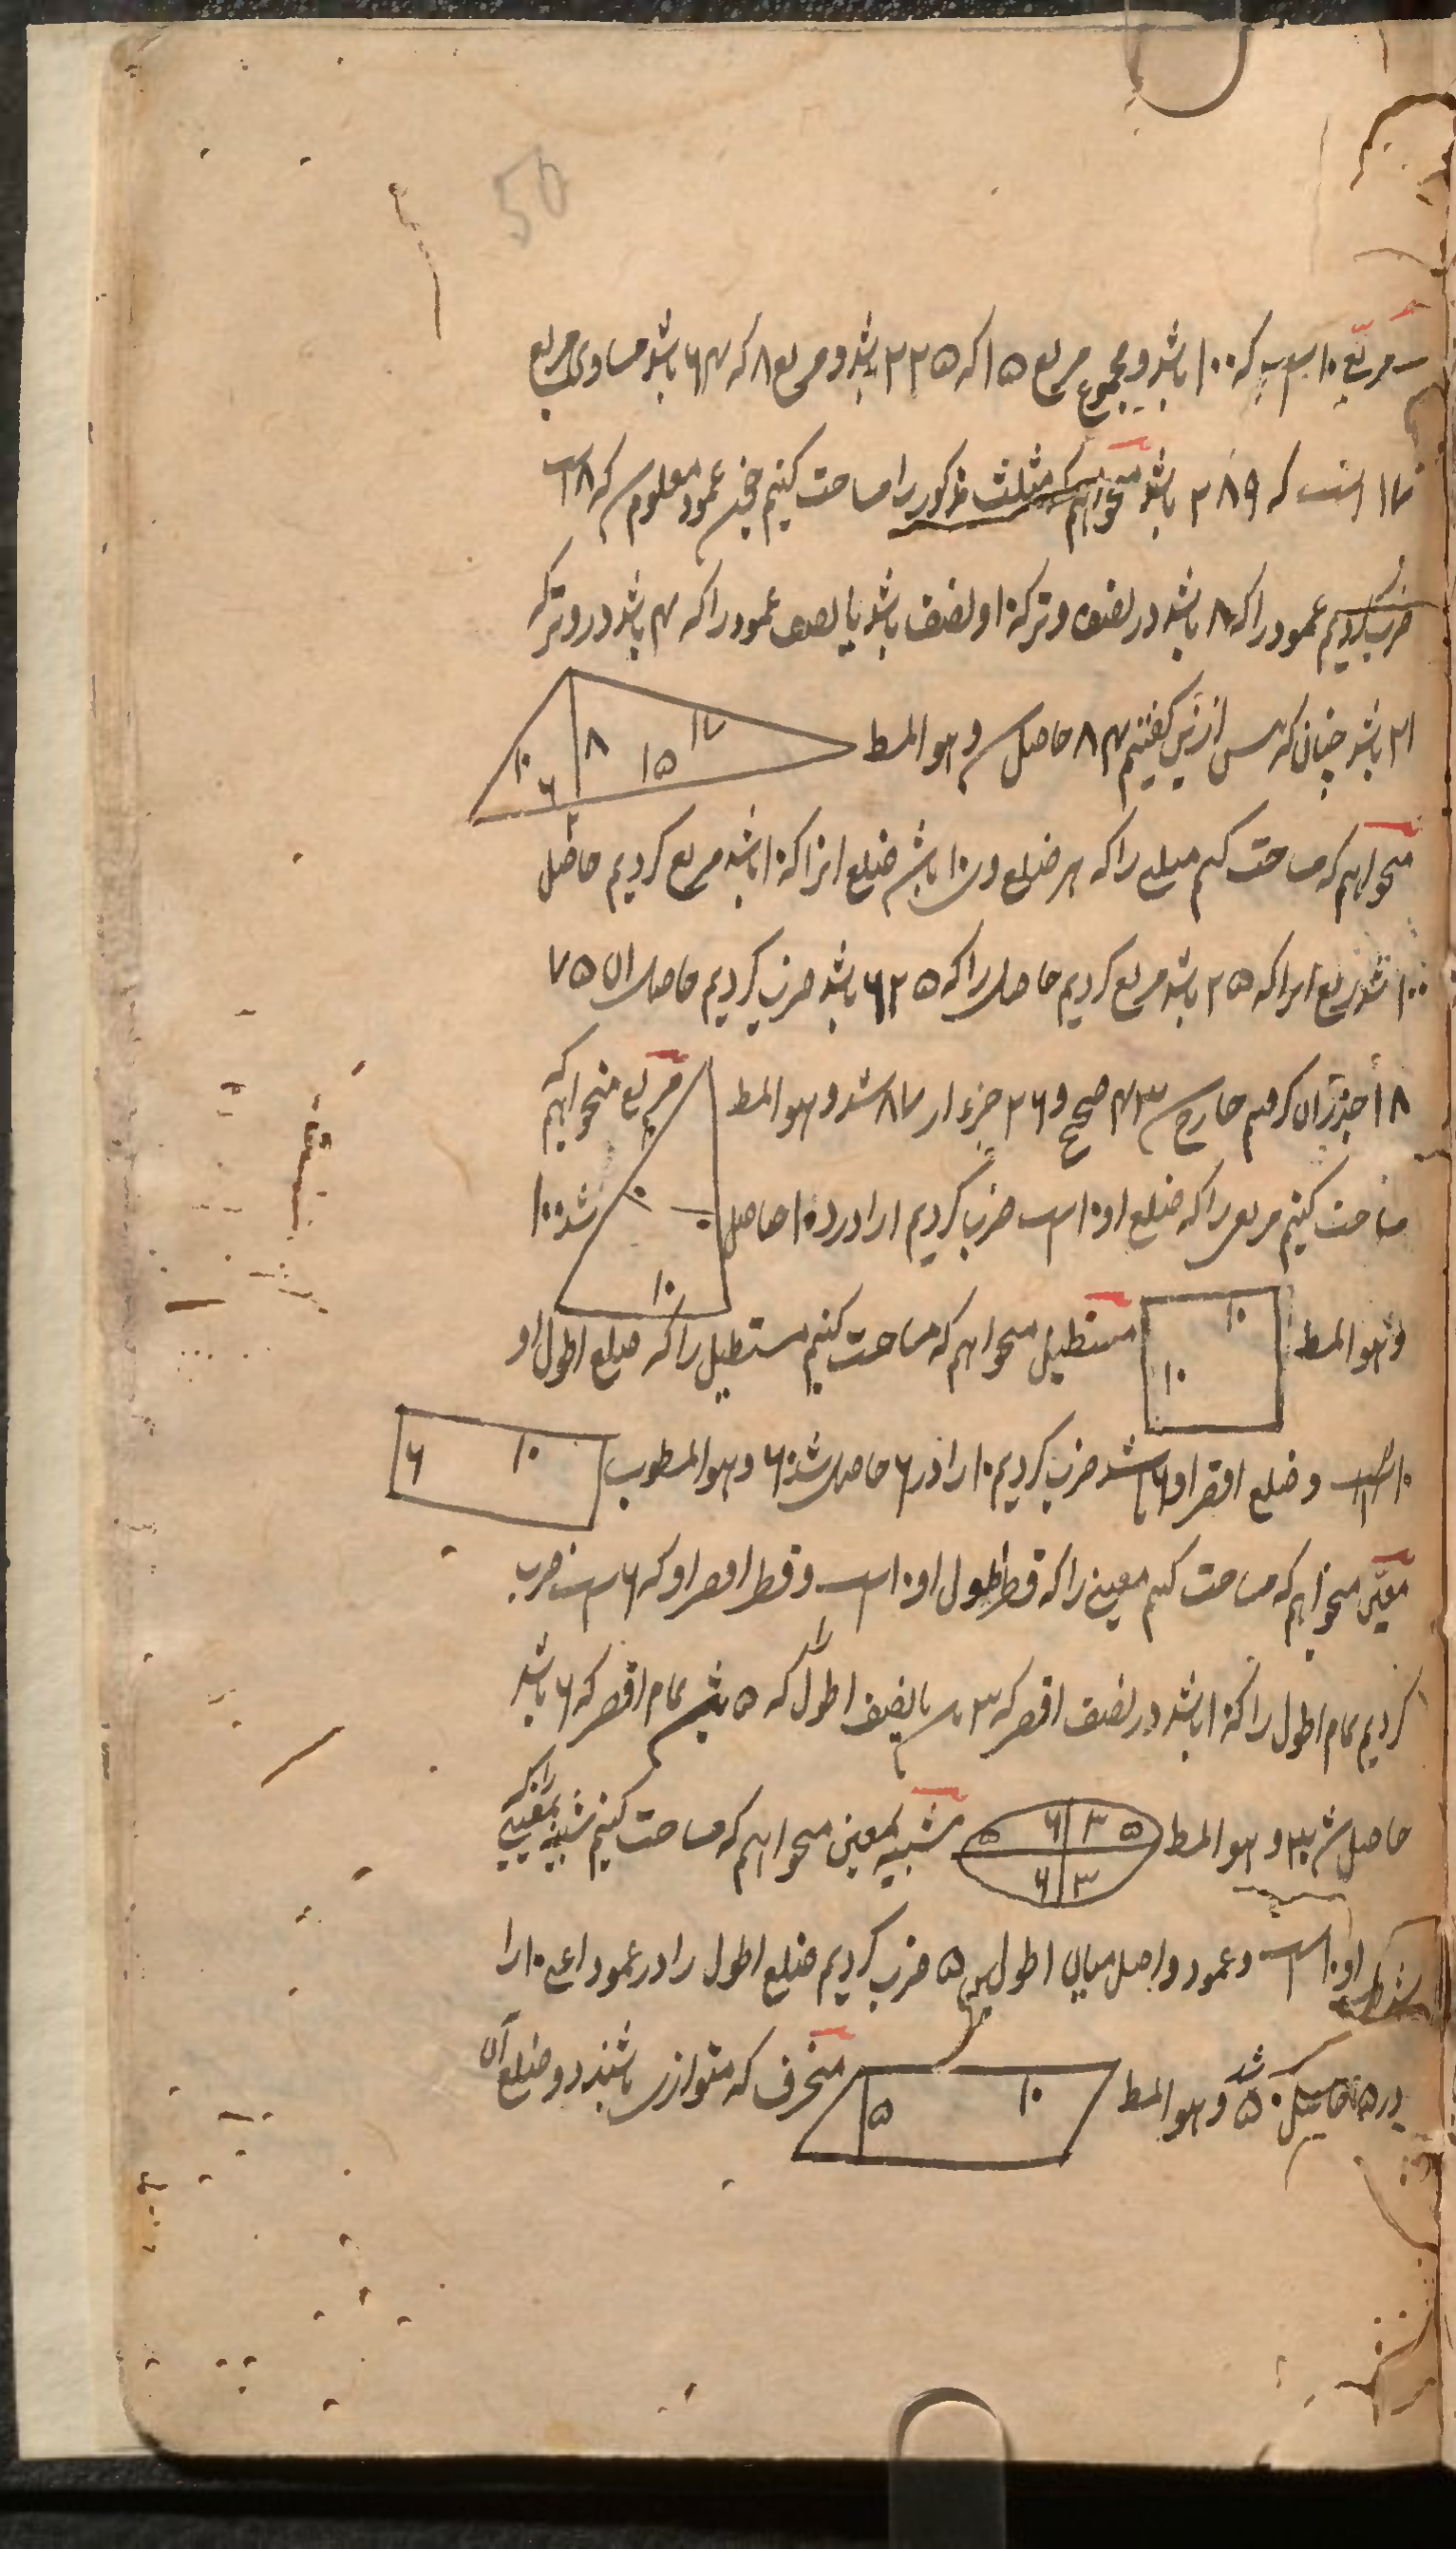 50
مربع ۱۰ است که ۱۰۰ باشد و مجموع مربع ۱۵ که ۲۲۵ باشد و مربع ۸ که ۶۴ باشد مساوی مربع
۱۷ است که ۲۸۹ باشد میخواهیم که مثلث مذکور را مساحت کنیم عمود معلوم که ۸ است
ضرب کردیم عمود را که ۸ باشد در نصف وتر که ۱۰ و نصف باشد یا نصف عمود را که ۴ باشد در وتر که
۲۱ باشد چنان که پس ازین گفتیم ۸۴ حاصل شد و هو المط
۱۰ ۶ ۸ ۱۵ ۱۷
میخواهیم که مساحت کنیم مثلثی را که هر ضلع ۱۰ باشد ضلع انرا که ۱۰ باشد مربع کردیم حاصل
۱۰۰ شد ربع انرا که ۲۵ باشد مربع کردیم حاصل را که ۶۲۵ باشد ضرب کردیم حاصل ان ۷۵
۱۸ جذر آن گرفتیم خارج ۴۳ صحیح و ۲۶ جزء از ۸۷ شد و هو المط مربع میخواهیم که
مساحت کنیم مربعی را که ضلع او ۱۰ است ضرب کردیم ۱۰ را در ۱۰ حاصل شد ۱۰۰
۱۰ ۱۰ ۱۰
و هو المط ۱۰ ۱۰ مستطیل میخواهم که مساحت کنیم مستطیل را که ضلع اطول او
۱۰ است و ضلع اقصر او ۶ باشد ضرب کردیم ۱۰ را در ۶ حاصل شد ۶۰ و هو المطلوب ۱۰ ۶
معین میخواهم که مساحت کنیم معینی را که قطر اطول او ۱۰ است و قطر اقصر او که ۶ است ضرب
کردیم تمام اطول را که ۱۰ باشد در نصف اقصر که ۳ باشد یا نصف اطول را که ۵ باشد در تمام اقصر که ۶ باشد
حاصل شد ۳۰ و هو المط ۵ ۳ ۶ ۵ ۳ ۶ شبیه بمعین میخواهم که مساحت کنیم شبیه بمعینی را که
او ۱۰ است و عمود واصل میان اطولین ۵ ضرب کردیم ضلع اطول را در عمود اعنی ۱۰ را
در ۵ حاصل ۵۰ شد و هو المط ۱۰ ۵ منحرف که متوازی باشند دو ضلع آن